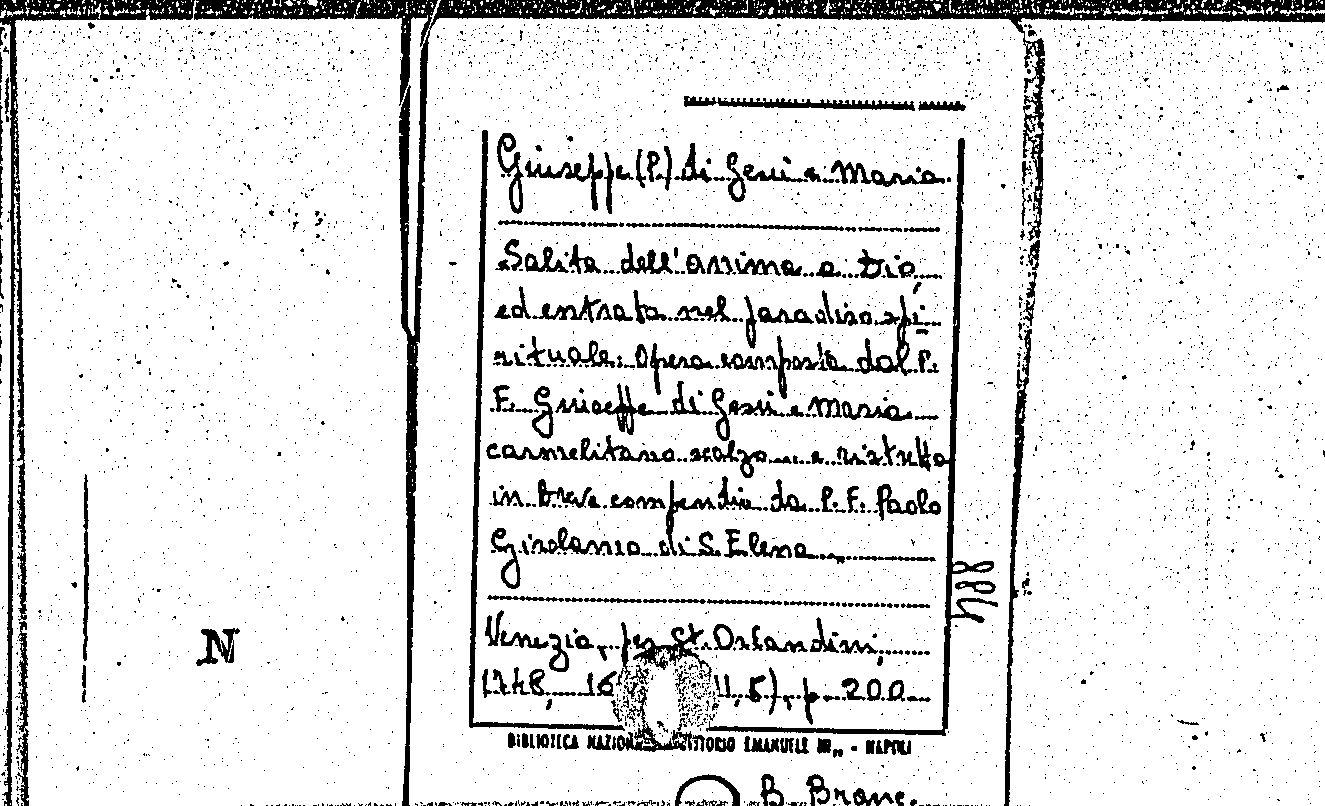 Giuseppe (P.) di Gesù e Maria.
Salita dell'anima a Dio,
ed entrata nel paradiso spi-
rituale: Opera composta dal P.
F. Giuseppe di Gesù e Maria
carmelitano scalzo... e ristretto
in breve compendio da P. F. Paolo
Girolamo di S. Elena
Venezia, per St. Orlandini,
1748, 16 11,5), p. 200
BIBLIOTECA VITTORIO EMANUELE III,, - NAPOLI
N
B. Branc.